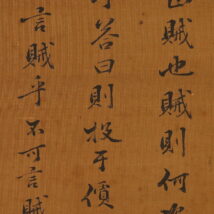 賊也賊則何
答曰則投于債
言賊乎不可言賊